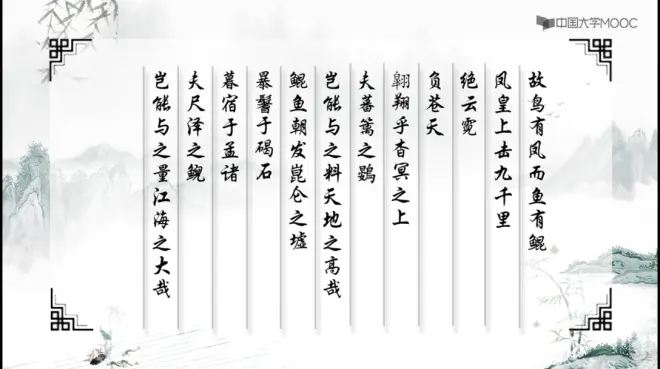 中国大学MOOC
故鸟有凤而鱼有鲲
凤皇上击九千里
绝云霓
负苍天
翱翔乎杳冥之上
夫蕃篱之鷃
岂能与之料天地之高哉
鲲鱼朝发崑仑之墟
暴鬐于碣石
暮宿于孟诸
夫尺泽之鲵
岂能与之量江海之大哉